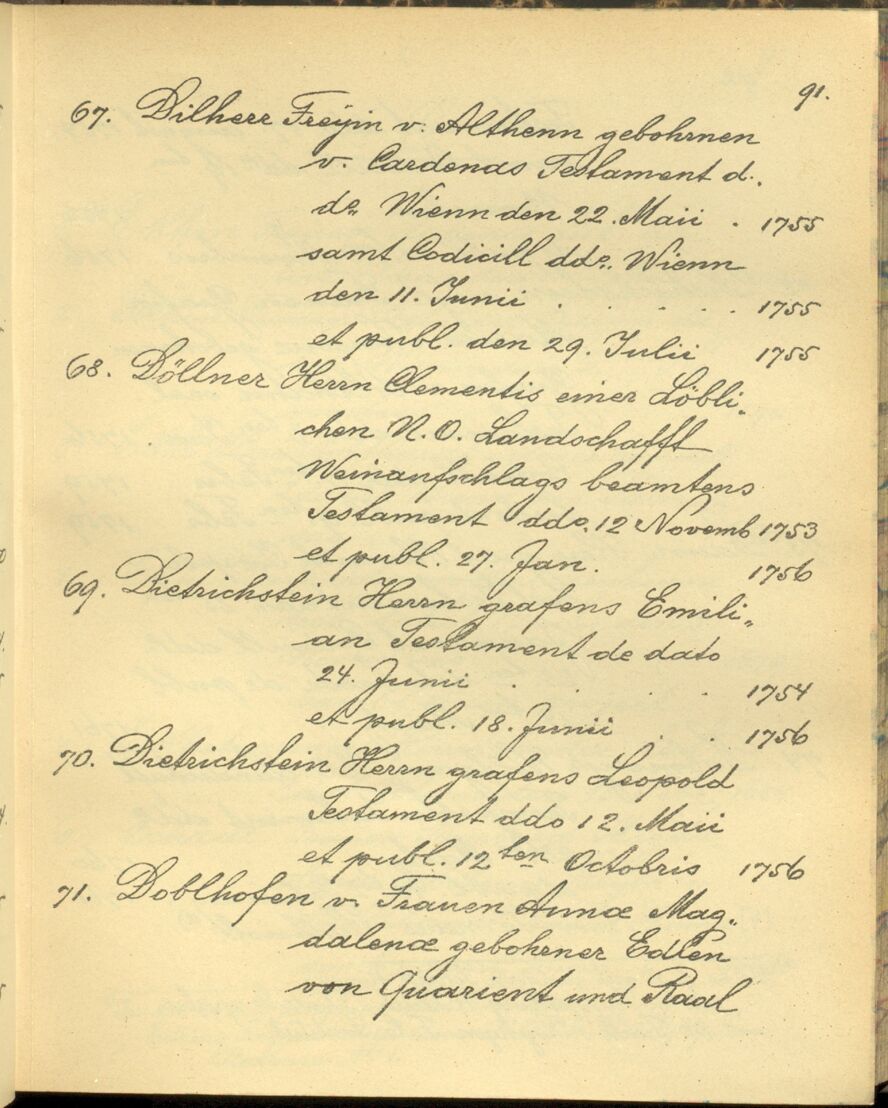 91.
67. Dilherr Freÿin v. Althenn gebohrnen
v. Cardenas Testament d.
do. Wienn den 22. Maii . 1755
samt Codicill ddo. Wienn
den 11. Junii . . . . . 1755
et publ. den 29. Julii 1755
68. Döllner Herrn Clementis einer Löbli„
chen N. O. Landschafft
Weinaufschlags beamtens
Testament ddo. 12 Novemb 1753
et publ. 27. Jan. 1756
69. Dietrichstein Herrn grafens Emili„
an Testament de dato
24. Junii . . . . . 1754
et publ. 18. Junii . . 1756
70. Dietrichstein Herrn grafens Leopold
Testament ddo 12. Maii
et publ. 12ten Octobris 1756
71. Doblhofen v. Frauen Annæ Mag„
dalenæ gebohrner Edlen
von Quarient und Raal